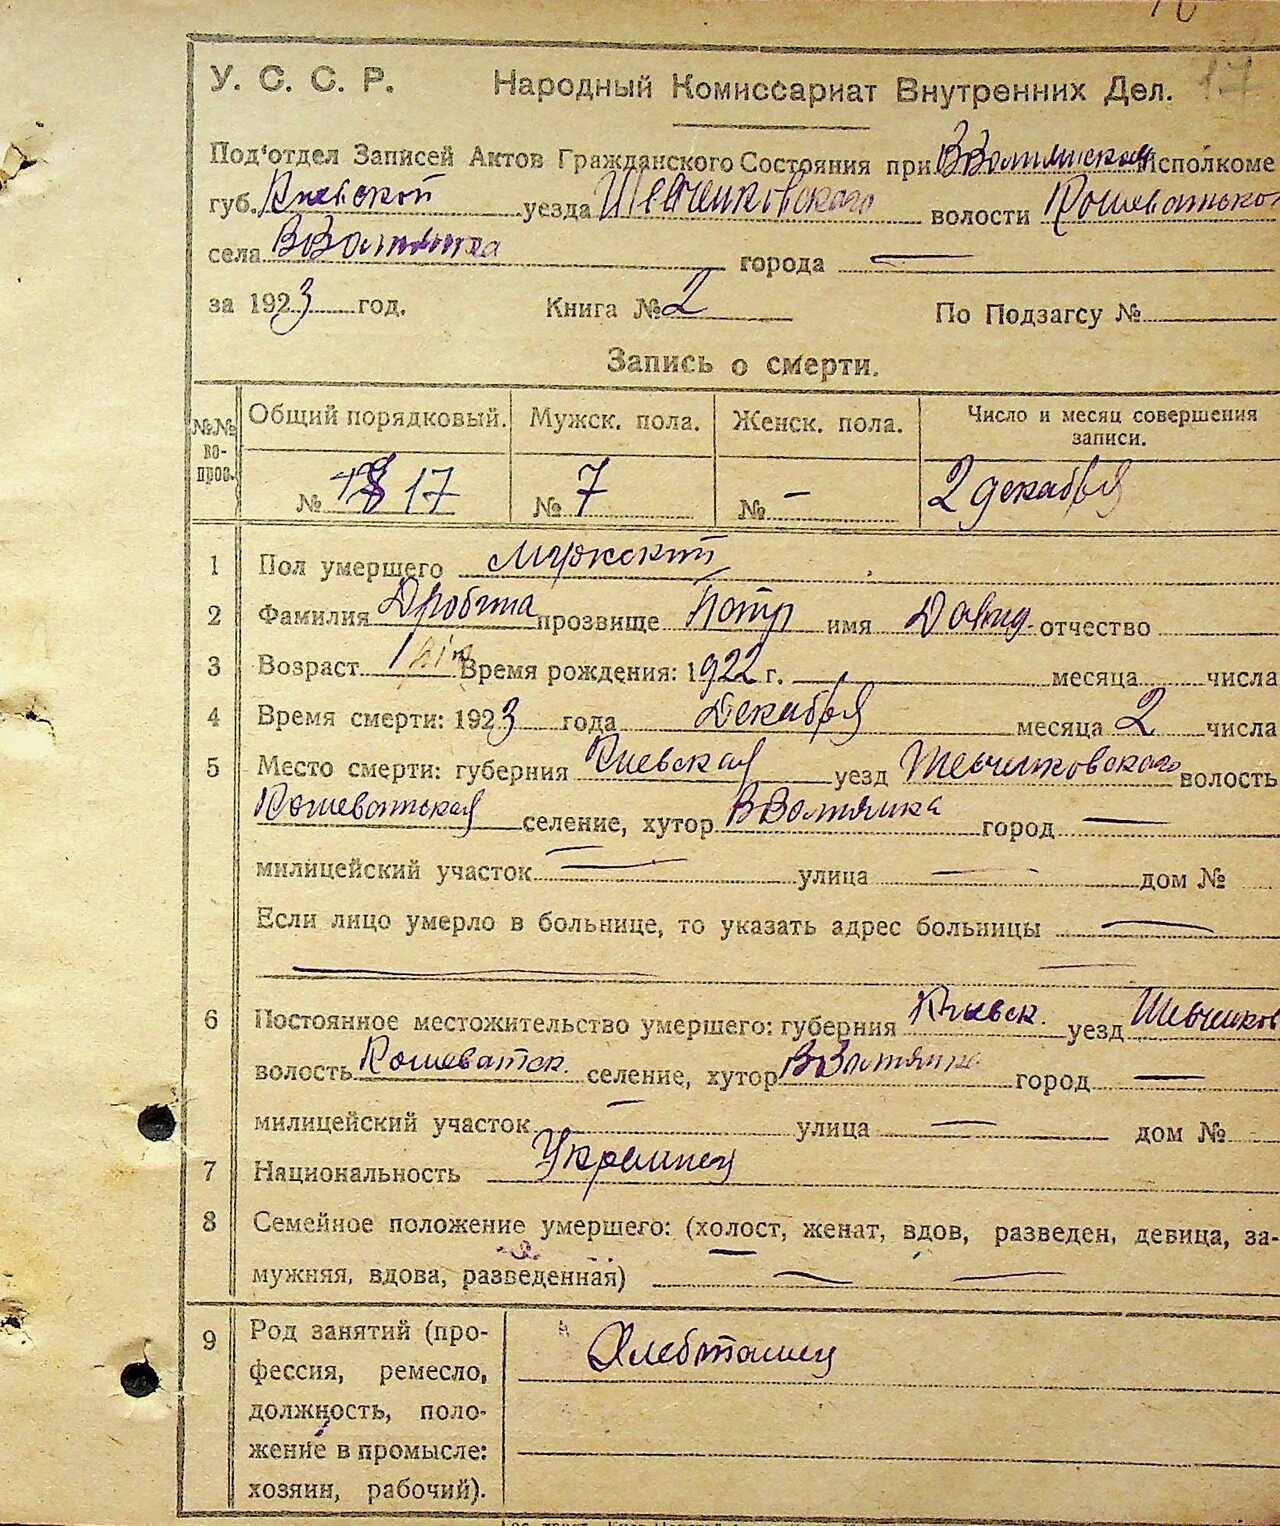 17
У. С. С. Р. Народный Комиссариат Внутренних Дел.
Под'отдел Записей Актов Гражданского Состояния при Исполкоме
губ. Киевской уезда Шевченковского волости Кошеватской
села ВВотылевка города —
за 1923 год. Книга № 2 По Подзагсу №
Запись о смерти.
№№ во-пров. Общий порядковый. Мужск. пола. Женск. пола. Число и месяц совершения записи.
№ 17 № 7 № — 2 декабря
1 Пол умершего Мужский
2 Фамилия прозвище Петр имя Довид. отчество
3 Возраст 1 Время рождения: 1922 г. месяца числа
4 Время смерти: 1923 года Декабря месяца 2 числа
5 Место смерти: губерния Киевская уезд Шевченковского волость
Кошеватская селение, хутор город —
милицейский участок — улица — дом №
Если лицо умерло в больнице, то указать адрес больницы —
6 Постоянное местожительство умершего: губерния Киевск. уезд Шевченков
волость Кошеватск. селение, хутор город —
милицейский участок — улица — дом №
7 Национальность Украинец
8 Семейное положение умершего: (холост, женат, вдов, разведен, девица, за-
мужняя, вдова, разведенная) — —
9 Род занятий (про-
фессия, ремесло,
должность, поло-
жение в промысле:
хозяин, рабочий).
Хлебопашец